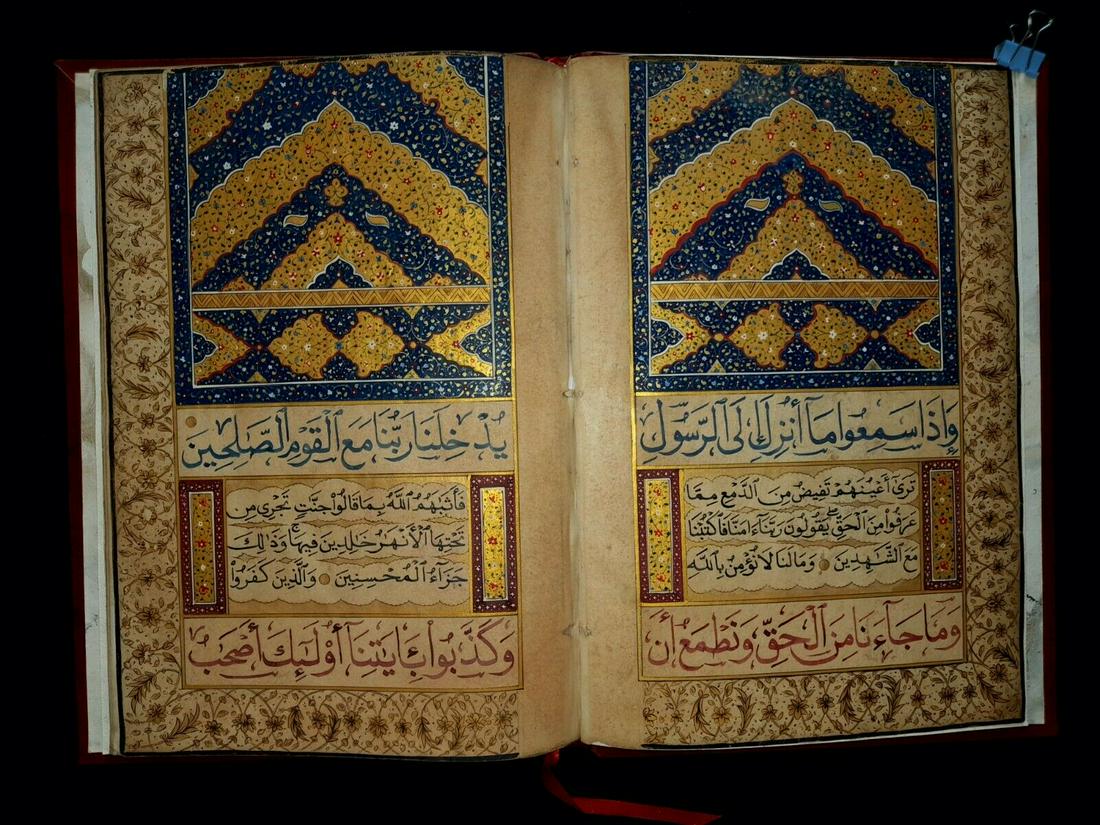 وَإِذَا سَمِعُوا مَآ أُنزِلَ إِلَى ٱلرَّسُولِ
تَرَىٰٓ أَعْيُنَهُمْ تَفِيضُ مِنَ ٱلدَّمْعِ مِمَّا
عَرَفُوا مِنَ ٱلْحَقِّ يَقُولُونَ رَبَّنَآ ءَامَنَّا فَٱكْتُبْنَا
مَعَ ٱلشَّـٰهِدِينَ وَمَا لَنَا لَا نُؤْمِنُ بِٱللَّهِ
وَمَا جَآءَنَا مِنَ ٱلْحَقِّ وَنَطْمَعُ أَن
يُدْخِلَنَا رَبُّنَا مَعَ ٱلْقَوْمِ ٱلصَّـٰلِحِينَ
فَأَثَـٰبَهُمُ ٱللَّهُ بِمَا قَالُوا جَنَّـٰتٍ تَجْرِى مِن
تَحْتِهَا ٱلْأَنْهَـٰرُ خَـٰلِدِينَ فِيهَا وَذَٰلِكَ
جَزَآءُ ٱلْمُحْسِنِينَ وَٱلَّذِينَ كَفَرُوا
وَكَذَّبُوا بِـَٔايَـٰتِنَآ أُولَـٰٓئِكَ أَصْحَـٰبُ